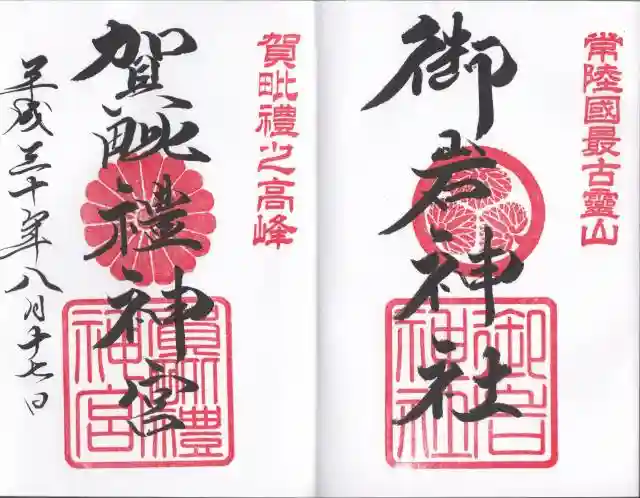 常陸國最古靈山
御岩神社
御岩神社
賀毗禮之高峰
賀毗禮神宮
賀毗禮神宮
平成三十年八月十七日